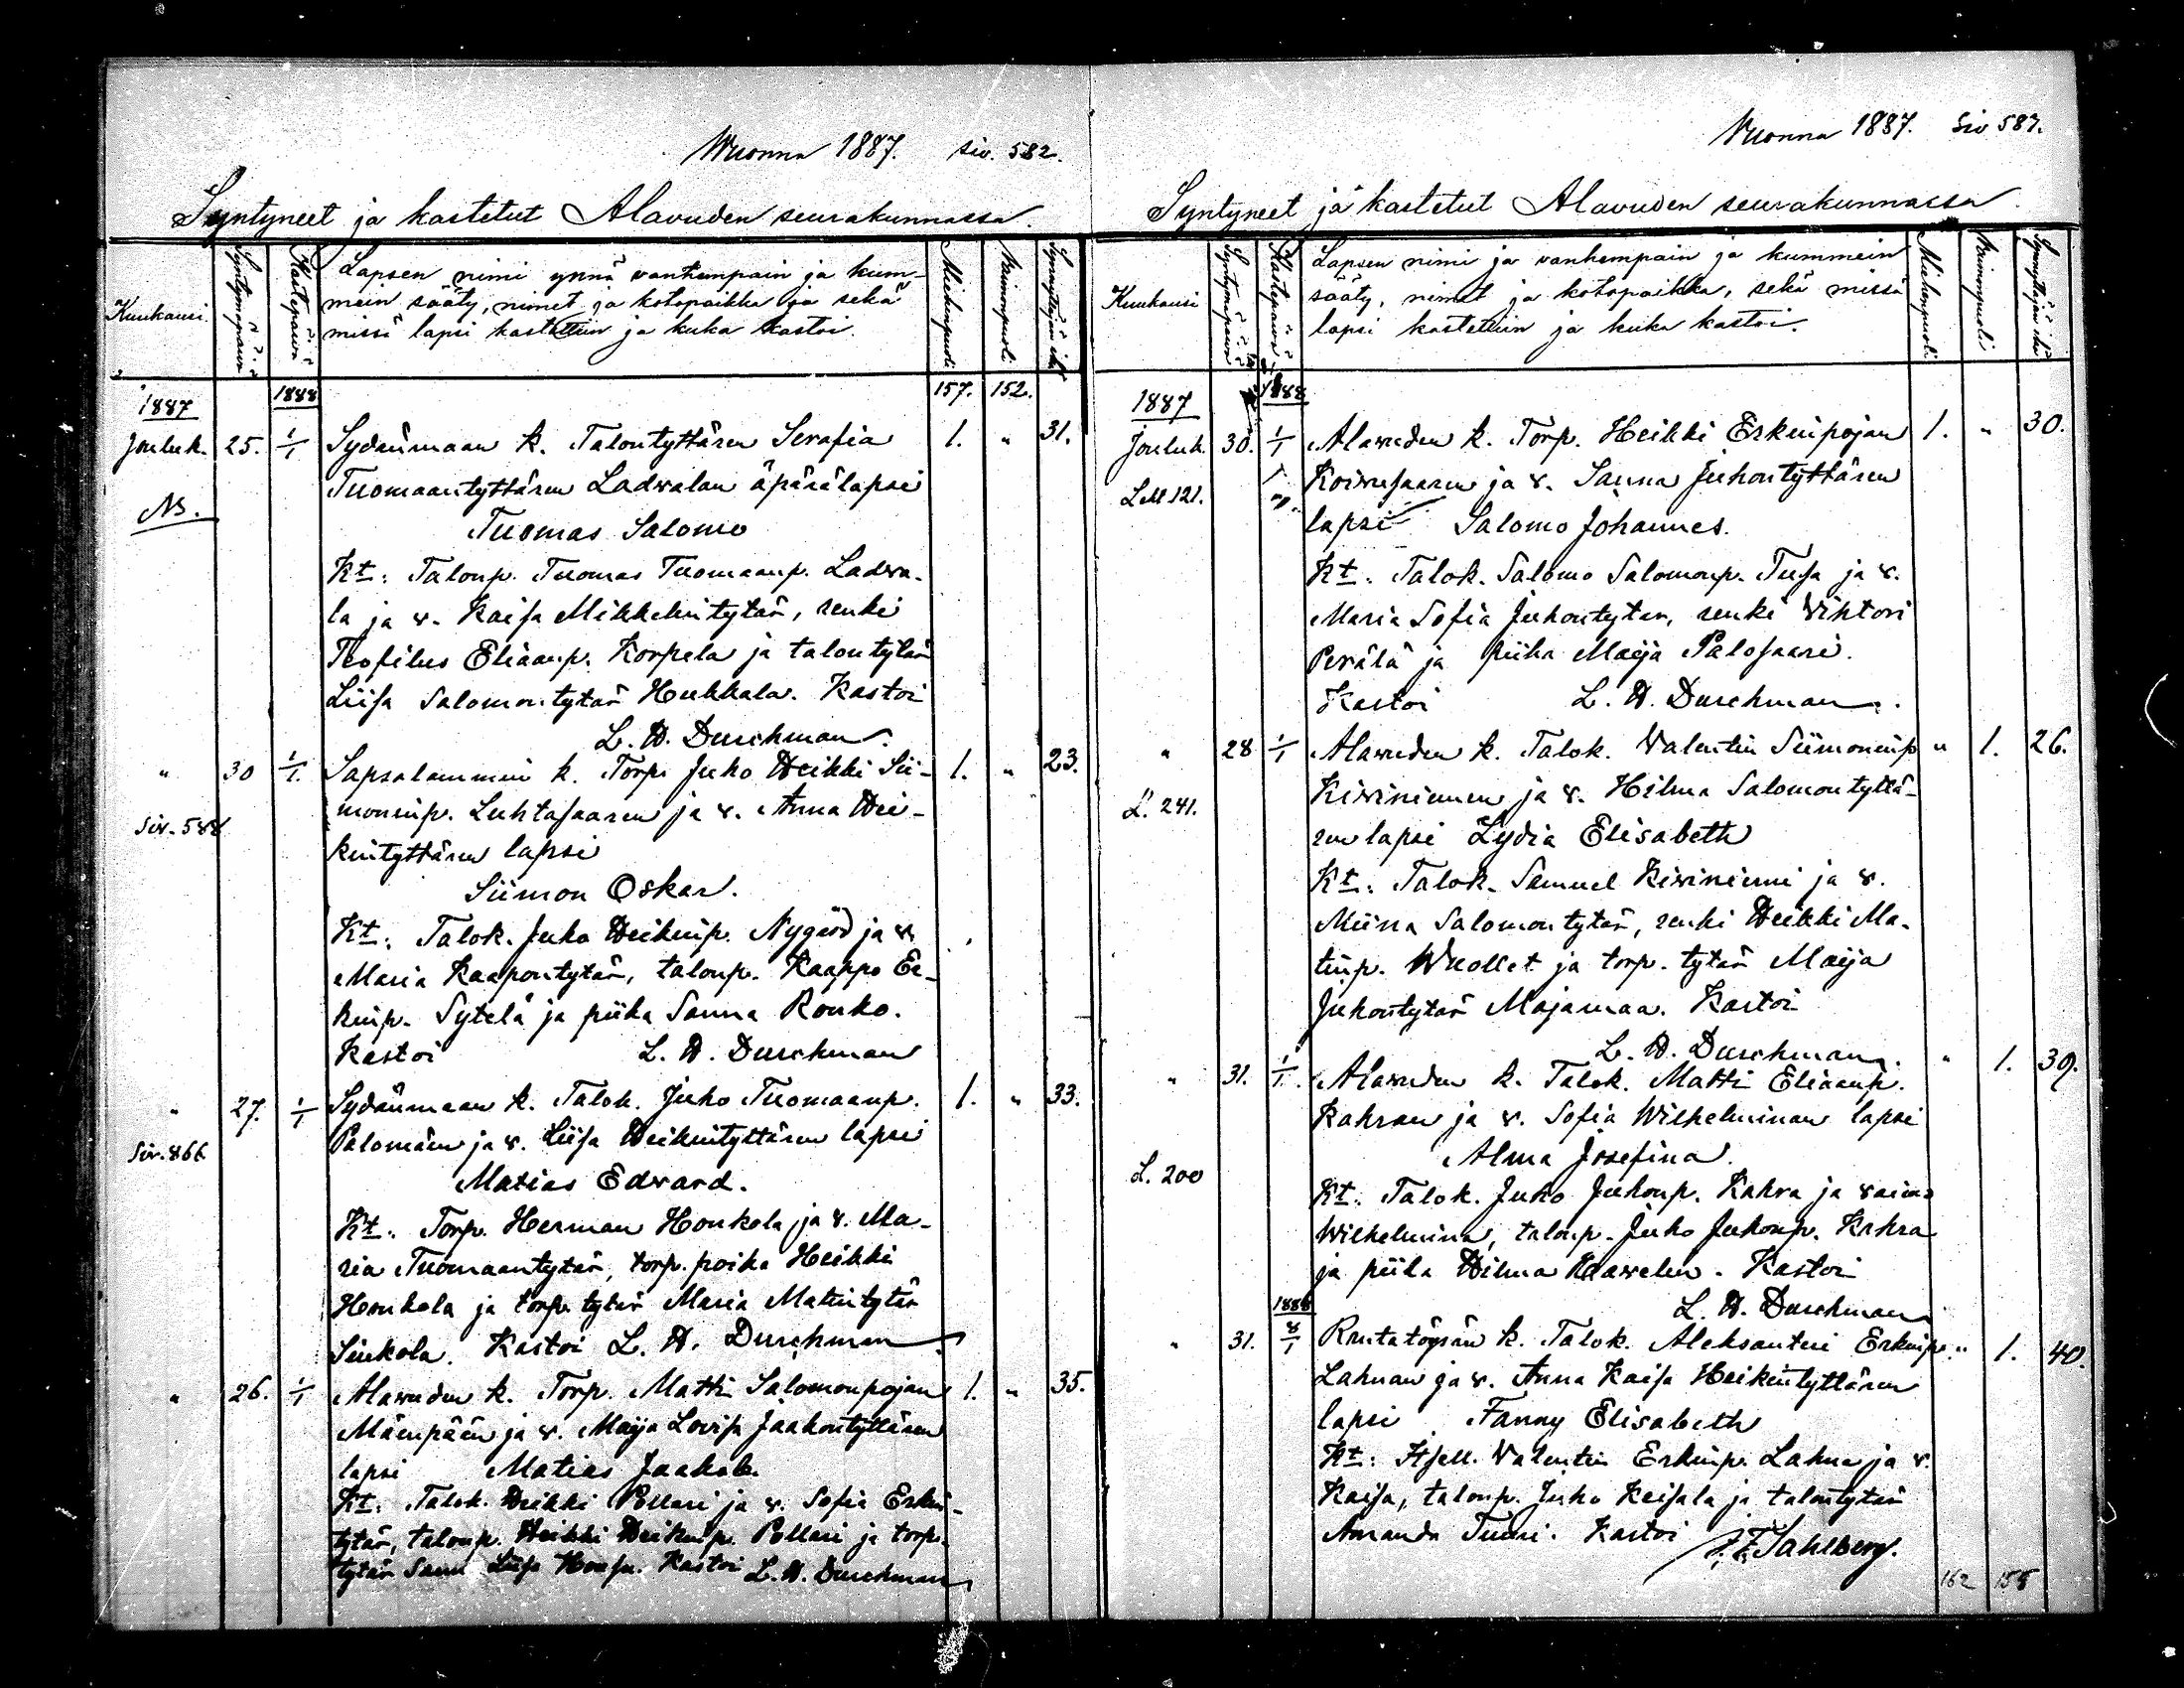 Wuonna 1887. siv. 582.
Syntyneet ja kastetut Alavuden seurakunnassa.
Kuukausi. Syntymäpäivä Kastepäivä Lapsen nimi ynnä vanhempain ja kum- Miehenpuoli Naimenpuoli Synnyttäjän ikä
mein sääty, nimet ja kotopaikka ja sekä
missä lapsi kastettiin ja kuka kastoi.
1887 1888 157. 152.
Jouluk. 25. 1/1 Sydänmaan k. Talontyttären Serafia 1. " 31.
Tuomaantyttären Ladvalan äpärälapsi
NB.
Tuomas Salomo
Kt: Talonp. Tuomas Tuomaanp. Ladva-
la ja v. Kaisa Mikkelintytär, renki
Teofilus Eliaanp. Korpela ja talontytär
Liisa Salomontytär Hukkala. Kastoi
L. H. Durchman.
" 30 1/1. Sapsalammin k. Torp. Juho Heikki Sii- 1. " 23.
Siv. 588 moninp. Luhtasaaren ja v. Anna Hei-
kintyttären lapsi
Siimon Oskar.
Kt: Talok. Juho Heikinp. Nygård ja v.
Maria Kaapontytär, talonp. Kaappo Er-
kinp. Sytelä ja piika Sanna Ronko.
Kastoi L. H. Durchman
" 27. 1/1 Sydänmaan k. Talok. Juho Tuomaanp. 1. " 33.
Siv. 866. Palomäen ja v. Liisa Heikintyttären lapsi
Matias Edvard.
Kt: Torp. Herman Honkola ja v. Ma-
ria Tuomaantytär, torp. poika Heikki
Honkola ja torp. tytär Maria Matintytär
Sinkola. Kastoi L. H. Durchman.
" 26. 1/1 Alavuden k. Torp. Matti Salomonpojan 1. " 35.
Mäenpään ja v. Maija Lovisa Jaakontyttären
lapsi Matias Jaakob.
Kt: Talok. Heikki Pollari ja v. Sofia Erkin-
tytär, talonp. Heikki Heikinp. Pollari ja torp.
tytär Sann Liisa Kastoi L. H. Durchman
Wuonna 1887. Siv 583.
Syntyneet ja kastetut Alavuden seurakunnassa.
Kuukausi Syntymäpäivä Kastepäivä Lapsen nimi ja vanhempain ja kummein Miehenpuoli Naimenpuoli Synnyttäjän ikä
sääty, nimet ja kotopaikka, sekä missä
lapsi kastettiin ja kuka kastoi.
1887 1888
Jouluk. 30. 1/1 Alavuden k. Torp. Heikki Erkinpojan 1. " 30.
Lehl 121. Koivusaaren ja v. Sanna Juhontyttären
lapsi Salomo Johannes.
Kt: Talok. Salomo Salomonp. Tusa ja v.
Maria Sofia Juhontytär, renki Vihtori
Perälä ja piika Maija Palosaari.
Kastoi L. H. Durchman.
" 28 1/1 Alavuden k. Talok. Valentin Siimoninp " 1. 26.
L. 241. Kiviniemen ja v. Hilma Salomontyttä-
ren lapsi Lydia Elisabeth
Kt: Talok. Samuel Kiviniemi ja v.
Miina Salomontytär, renki Heikki Ma-
tinp. Wuollet ja torp. tytär Maija
Juhontytär Majamaa. Kastoi
L. H. Durchman.
" 31. 1/1. Alavuden k. Talok. Matti Eliaanp. " 1. 39.
Kahran ja v. Sofia Wilhelminan lapsi
L. 200 Alma Josefina.
Kt: Talok. Juho Juhonp. Kahra ja vaimo
Wilhelmina, talonp. Juho Juhonp. Kahra
ja piika Hilma Haavelin. Kastoi
L. H. Durchman
1888
" 31. 8/1 Rantatöysän k. Talok. Aleksanteri Erkinp. " 1. 40.
Lahnan ja v. Anna Kaisa Heikintyttären
lapsi Fanny Elisabeth
Kt: Itsell. Valentin Erkinp. Lahna ja v.
Kaisa, talonp. Juho Keisala ja talontytär
Amanda Tuuri. Kastoi Sahlberg.
162 158